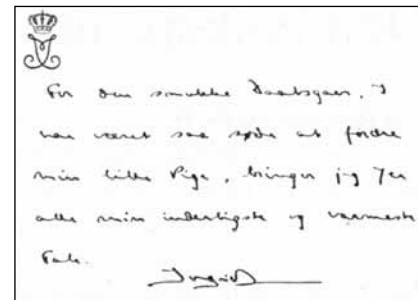 For den smukke Daabsgave, I
har været saa søde at forære
min lille Pige, bringer jeg Jer
alle min inderligste og varmeste
Tak.
Ingrid